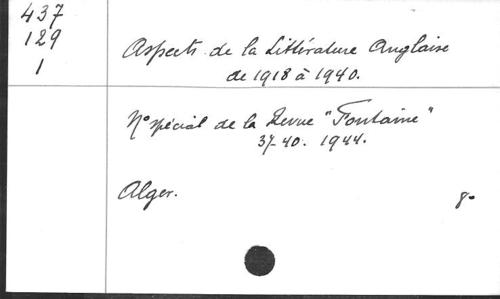 437
129
1
Aspects de la Littérature Anglaise
de 1918 à 1940.
N° spécial de la Revue "Fontaine"
37-40. 1944.
Alger. 8°